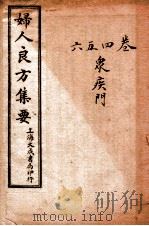 卷四五六
衆疾門
婦人良方集要
上海文成書局印行